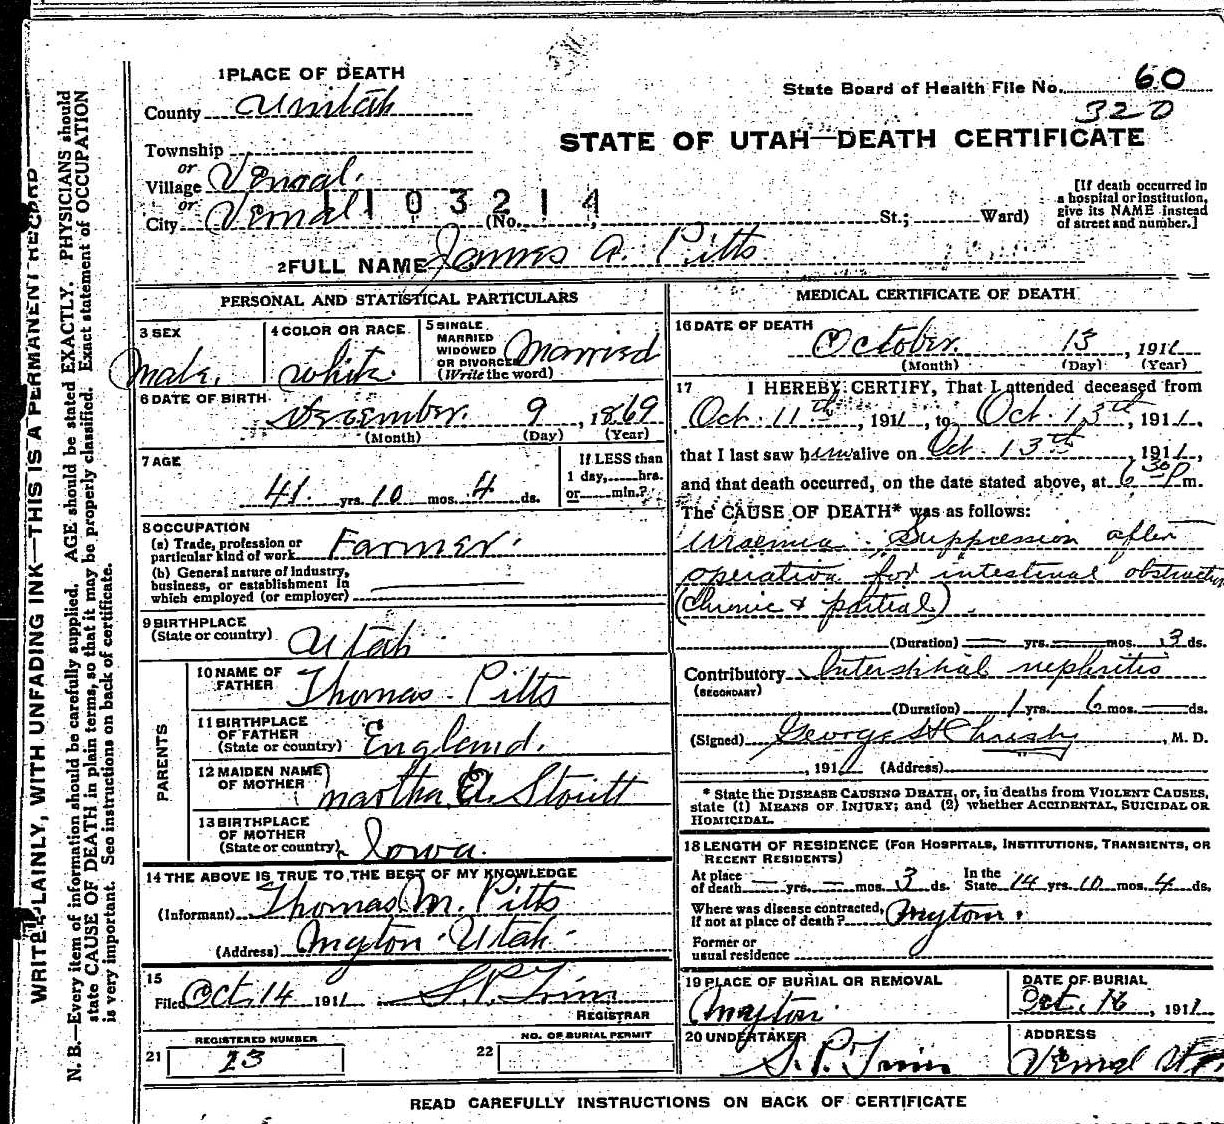 1 PLACE OF DEATH
County Uintah
State Board of Health File No. 60
320
Township
STATE OF UTAH—DEATH CERTIFICATE
or
Village Vernal.
or
City Vernal (No. St.; Ward)
1103214
[If death occurred in
a hospital or institution,
give its NAME instead
of street and number.]
2 FULL NAME James A. Pitts
PERSONAL AND STATISTICAL PARTICULARS
3 SEX
male.
4 COLOR OR RACE
white.
5 SINGLE
MARRIED
WIDOWED
OR DIVORCED
(Write the word)
Married
6 DATE OF BIRTH
December. 9, 1869
(Month) (Day) (Year)
7 AGE
41. yrs. 10 mos. 4 ds.
If LESS than
1 day, hrs.
or min.?
8 OCCUPATION
(a) Trade, profession or
particular kind of work Farmer.
(b) General nature of industry,
business, or establishment in
which employed (or employer)
9 BIRTHPLACE
(State or country) Utah
PARENTS
10 NAME OF
FATHER Thomas Pitts
11 BIRTHPLACE
OF FATHER
(State or country) England.
12 MAIDEN NAME
OF MOTHER Martha A. Stoutt
13 BIRTHPLACE
OF MOTHER
(State or country) Iowa.
14 THE ABOVE IS TRUE TO THE BEST OF MY KNOWLEDGE
(Informant) Thomas M. Pitts
(Address) Myton Utah
15
Filed Oct. 14 1911
REGISTRAR
REGISTERED NUMBER
21 23
NO. OF BURIAL PERMIT
22
MEDICAL CERTIFICATE OF DEATH
16 DATE OF DEATH
October. 13, 1911
(Month) (Day) (Year)
17 I HEREBY CERTIFY, That I attended deceased from
Oct. 11th, 1911, to Oct. 13th, 1911,
that I last saw him alive on Oct 13th, 1911,
and that death occurred, on the date stated above, at 6 30 P m.
The CAUSE OF DEATH* was as follows:
Uraemia. Suppression after
operation for intestinal obstruction
(chronic & partial).
(Duration) — yrs. — mos. 3 ds.
Contributory Interstitial nephritis
(SECONDARY)
(Duration) 1 yrs. 6 mos. — ds.
(Signed) George H Christy, M. D.
, 191 (Address)
* State the DISEASE CAUSING DEATH, or, in deaths from VIOLENT CAUSES,
state (1) MEANS OF INJURY; and (2) whether ACCIDENTAL, SUICIDAL OR
HOMICIDAL.
18 LENGTH OF RESIDENCE (FOR HOSPITALS, INSTITUTIONS, TRANSIENTS, OR
RECENT RESIDENTS)
At place
of death — yrs. — mos. 3 ds.
In the
State 14 yrs. 10 mos. 4 ds.
Where was disease contracted,
if not at place of death? Myton.
Former or
usual residence
19 PLACE OF BURIAL OR REMOVAL
Myton.
DATE OF BURIAL
Oct. 16, 1911
20 UNDERTAKER
ADDRESS
Vernal
READ CAREFULLY INSTRUCTIONS ON BACK OF CERTIFICATE
WRITE PLAINLY, WITH UNFADING INK—THIS IS A PERMANENT RECORD
N. B.—Every item of information should be carefully supplied. AGE should be stated EXACTLY. PHYSICIANS should
state CAUSE OF DEATH in plain terms, so that it may be properly classified. Exact statement of OCCUPATION
is very important. See instructions on back of certificate.